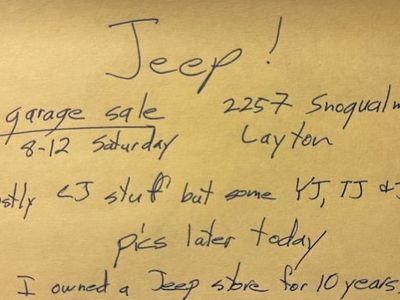 Jeep!
garage sale 2257 Snoqualm
8-12 Saturday Layton
stly LJ stuff but some YJ, TJ & J
pics later today
I owned a Jeep store for 10 years.